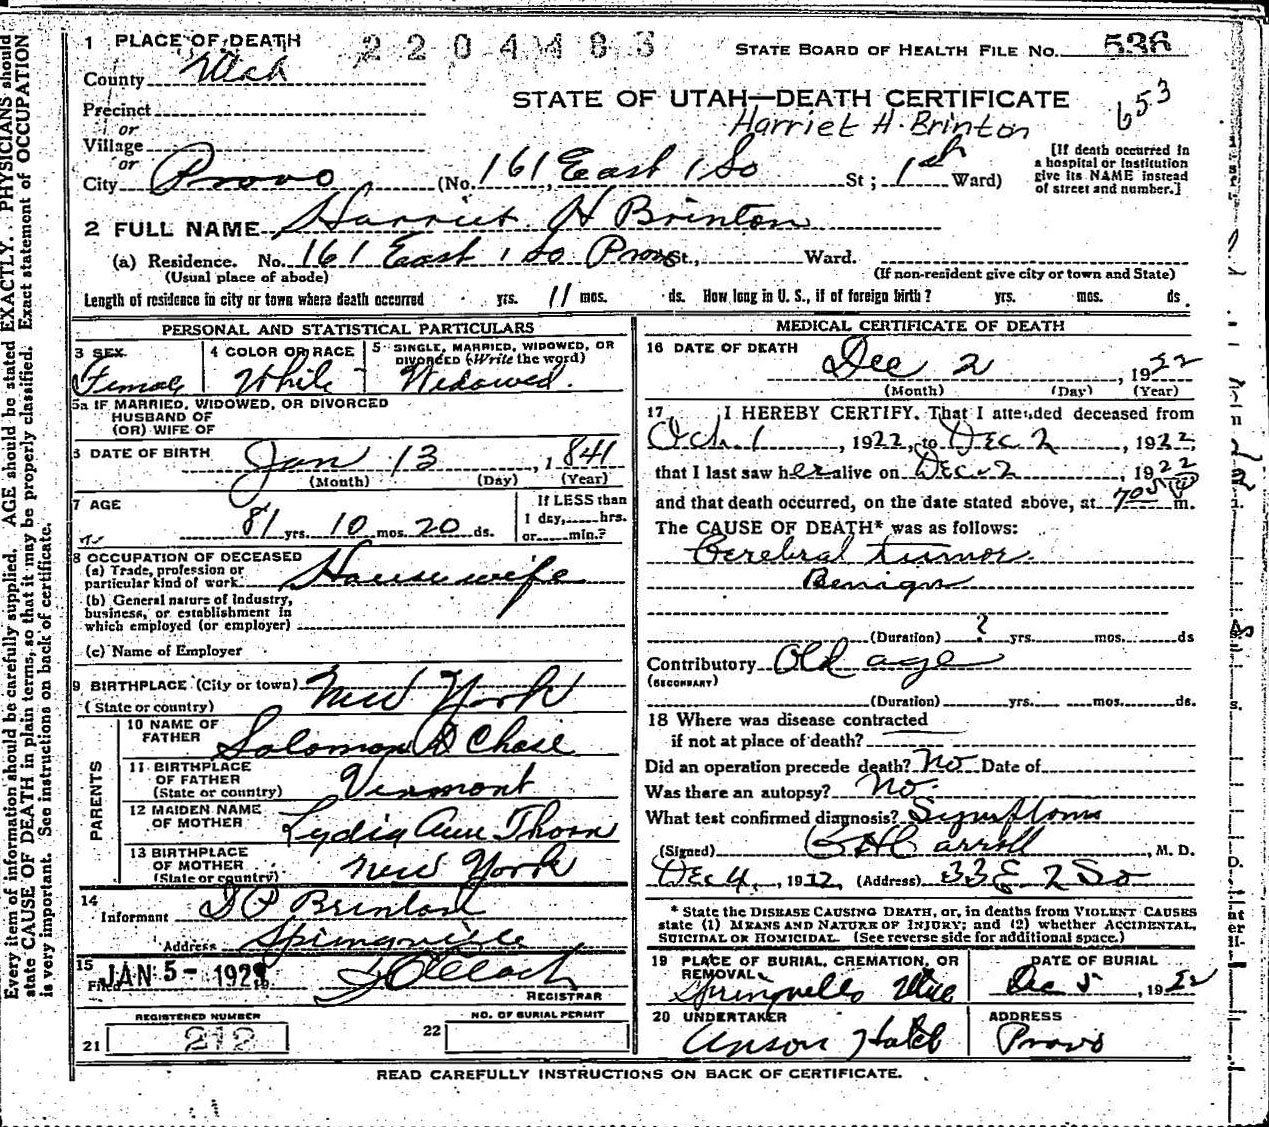 1 PLACE OF DEATH
2204483
STATE BOARD OF HEALTH FILE No. 536
County Utah
STATE OF UTAH—DEATH CERTIFICATE
653
Precinct
Harriet H. Brinton
or
Village
or
City Provo (No. 161 East 1 So St; 1st Ward)
[If death occurred in a hospital or institution give its NAME instead of street and number.]
2 FULL NAME Harriet H Brinton
(a) Residence. No. 161 East 1 So Provo St., Ward.
(Usual place of abode) (If non-resident give city or town and State)
Length of residence in city or town where death occurred yrs. 11 mos. ds. How long in U. S., if of foreign birth? yrs. mos. ds.
PERSONAL AND STATISTICAL PARTICULARS
3 SEX
Female
4 COLOR OR RACE
White
5 SINGLE, MARRIED, WIDOWED, OR DIVORCED (Write the word)
Widowed.
5a IF MARRIED, WIDOWED, OR DIVORCED
HUSBAND OF
(OR) WIFE OF
6 DATE OF BIRTH Jan 13, 1841
(Month) (Day) (Year)
7 AGE
81 yrs. 10 mos. 20 ds.
If LESS than
1 day, hrs.
or min.?
8 OCCUPATION OF DECEASED
(a) Trade, profession or
particular kind of work Housewife
(b) General nature of industry,
business, or establishment in
which employed (or employer)
(c) Name of Employer
9 BIRTHPLACE (City or town) New York
(State or country)
PARENTS
10 NAME OF
FATHER Solomon D Chase
11 BIRTHPLACE
OF FATHER
(State or country) Vermont
12 MAIDEN NAME
OF MOTHER Lydia Ann Thorn
13 BIRTHPLACE
OF MOTHER
(State or country) New York
14
Informant Brinton
Address Springville
15
Filed JAN 5- 192
REGISTRAR
REGISTERED NUMBER
21 212
NO. OF BURIAL PERMIT
22
MEDICAL CERTIFICATE OF DEATH
16 DATE OF DEATH
Dec 2, 1922
(Month) (Day) (Year)
17 I HEREBY CERTIFY, That I attended deceased from
Oct. 1, 1922, to Dec 2, 1922
that I last saw her alive on Dec. 2, 1922
and that death occurred, on the date stated above, at 705 m.
The CAUSE OF DEATH* was as follows:
Cerebral tumor.
Benign
(Duration) ? yrs. mos. ds
Contributory Old age
(SECONDARY)
(Duration) yrs. mos. ds.
18 Where was disease contracted
if not at place of death?
Did an operation precede death? No Date of
Was there an autopsy? No.
What test confirmed diagnosis? Symptoms
(Signed) Carroll, M. D.
Dec 4, 1922 (Address) 33 E 2 So
* State the DISEASE CAUSING DEATH, or, in deaths from VIOLENT CAUSES
state (1) MEANS AND NATURE OF INJURY; and (2) whether ACCIDENTAL,
SUICIDAL OR HOMICIDAL. (See reverse side for additional space.)
19 PLACE OF BURIAL, CREMATION, OR
REMOVAL
Springville Utah
DATE OF BURIAL
Dec 5, 1922
20 UNDERTAKER
Anson Hatch
ADDRESS
Provo
READ CAREFULLY INSTRUCTIONS ON BACK OF CERTIFICATE.
Every item of information should be carefully supplied. AGE should be stated EXACTLY. PHYSICIANS should
state CAUSE OF DEATH in plain terms, so that it may be properly classified. Exact statement of OCCUPATION
is very important. See instructions on back of certificate.